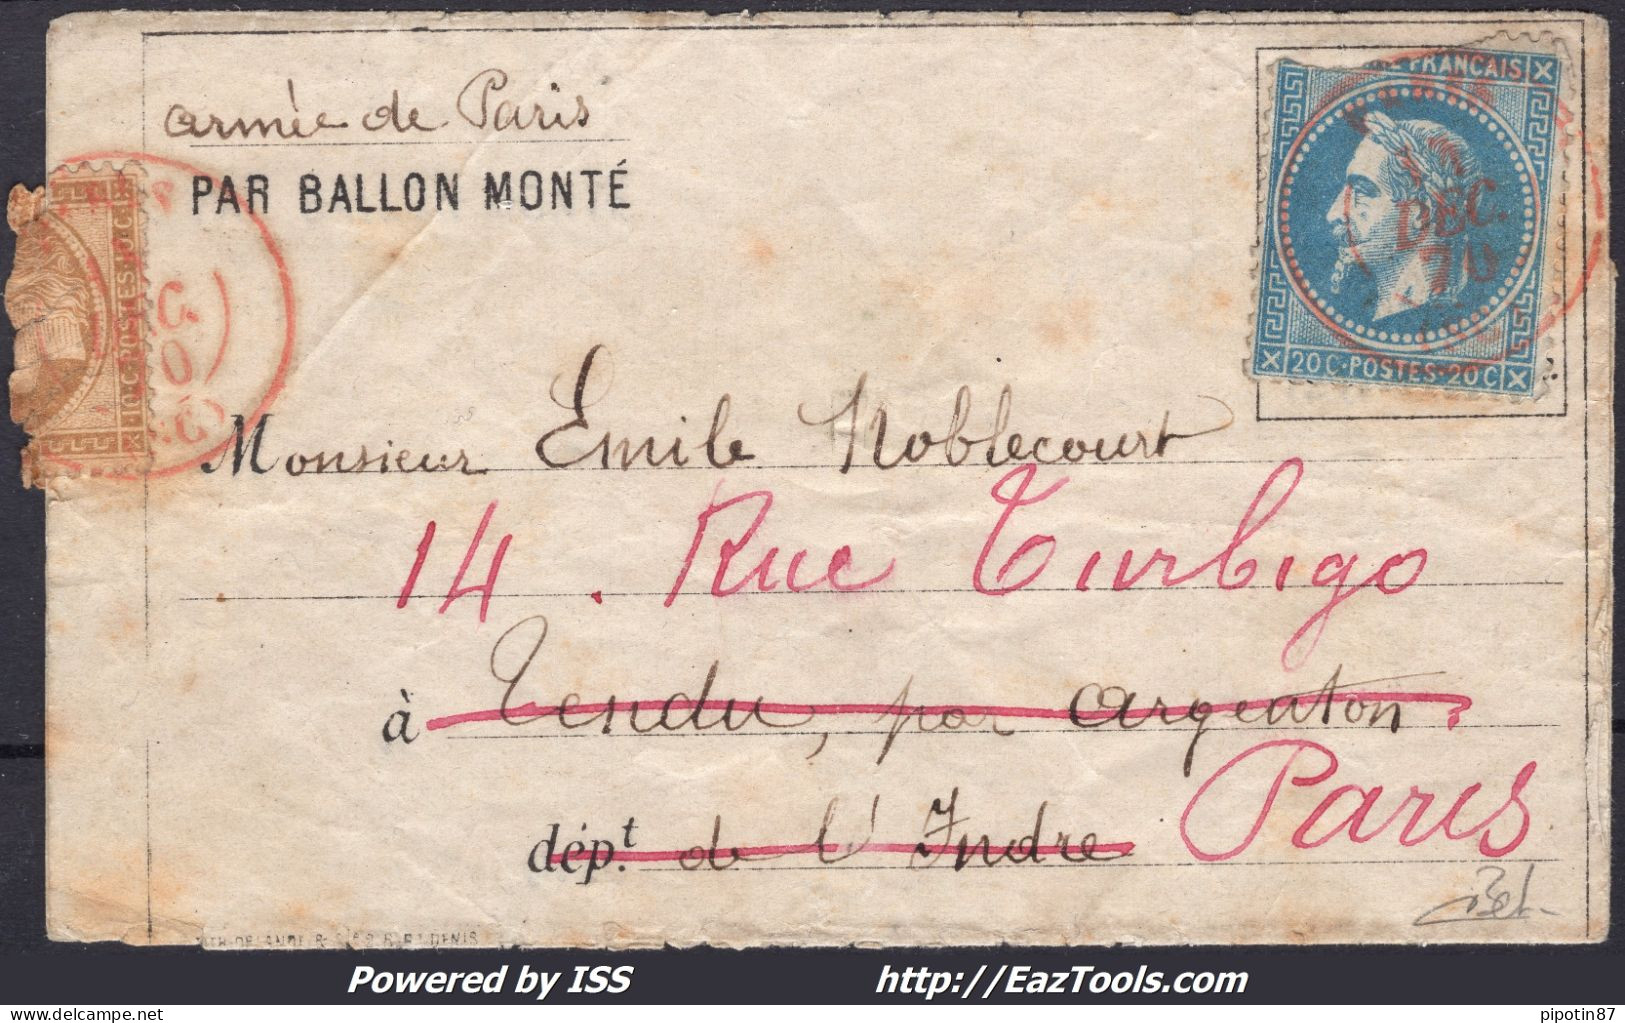 armée de Paris
PAR BALLON MONTÉ
FRANCAIS
DEC.
70
20 C·POSTES·20 C
10·C·POSTES·10·C
Monsieur Emile Noblecourt
14. Rue Turbigo
à Tendu, par argenton
Paris
dép.t de l'Indre
Powered by ISS http://EazTools.com
pipotin87